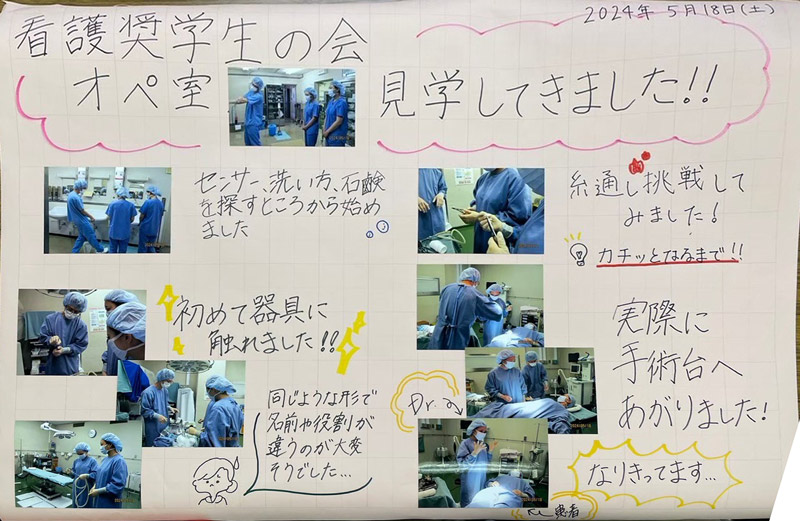 2024年 5月18日(土)
看護奨学生の会
オペ室 見学してきました!!
センサー、洗い方、石鹸
を探すところから始め
ました
糸通し挑戦して
みました!
カチッとなるまで!!
初めて器具に
触れました!!
同じような形で
名前や役割が
違うのが大変
そうでした…
実際に
手術台へ
あがりました!
Dr.
なりきってます…
患者